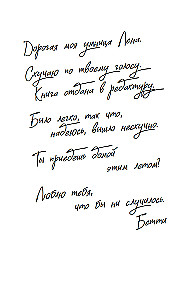 Дорогая моя умница Лена.
Скучаю по твоему голосу.
Книга отдана в редактуру.
Было легко, так что,
надеюсь, вышло нескучно.
Ты приедешь домой
этим летом?
Люблю тебя,
что бы ни случилось.
Бетти